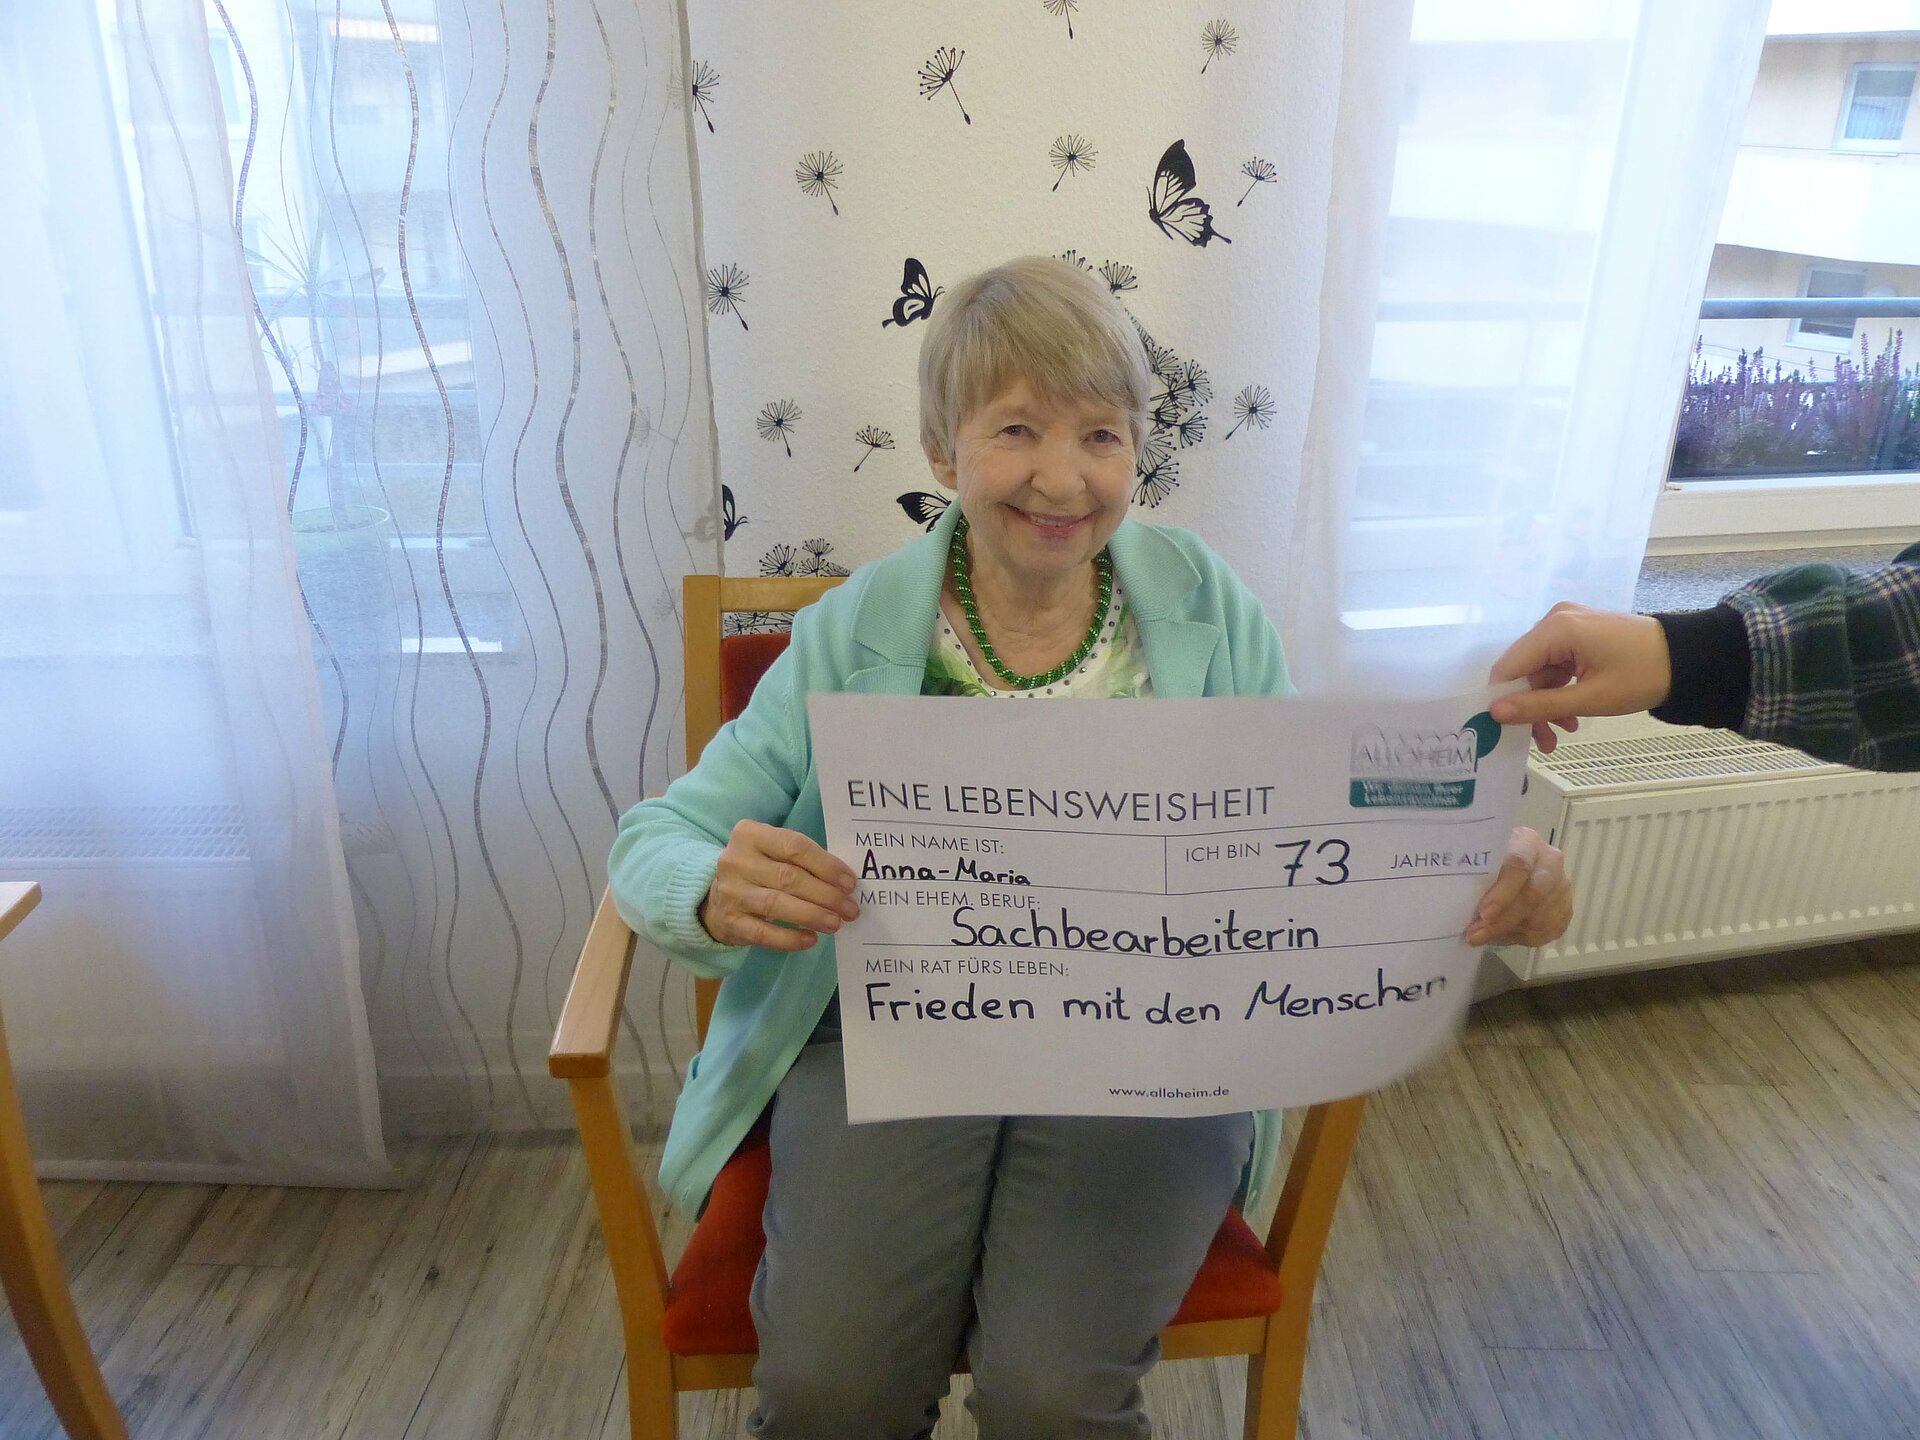 ALLOHEIM
Wir lieben Ihre
Lebensweisheit
EINE LEBENSWEISHEIT
MEIN NAME IST:
Anna-Maria
ICH BIN 73 JAHRE ALT
MEIN EHEM. BERUF:
Sachbearbeiterin
MEIN RAT FÜRS LEBEN:
Frieden mit den Menschen
www.alloheim.de